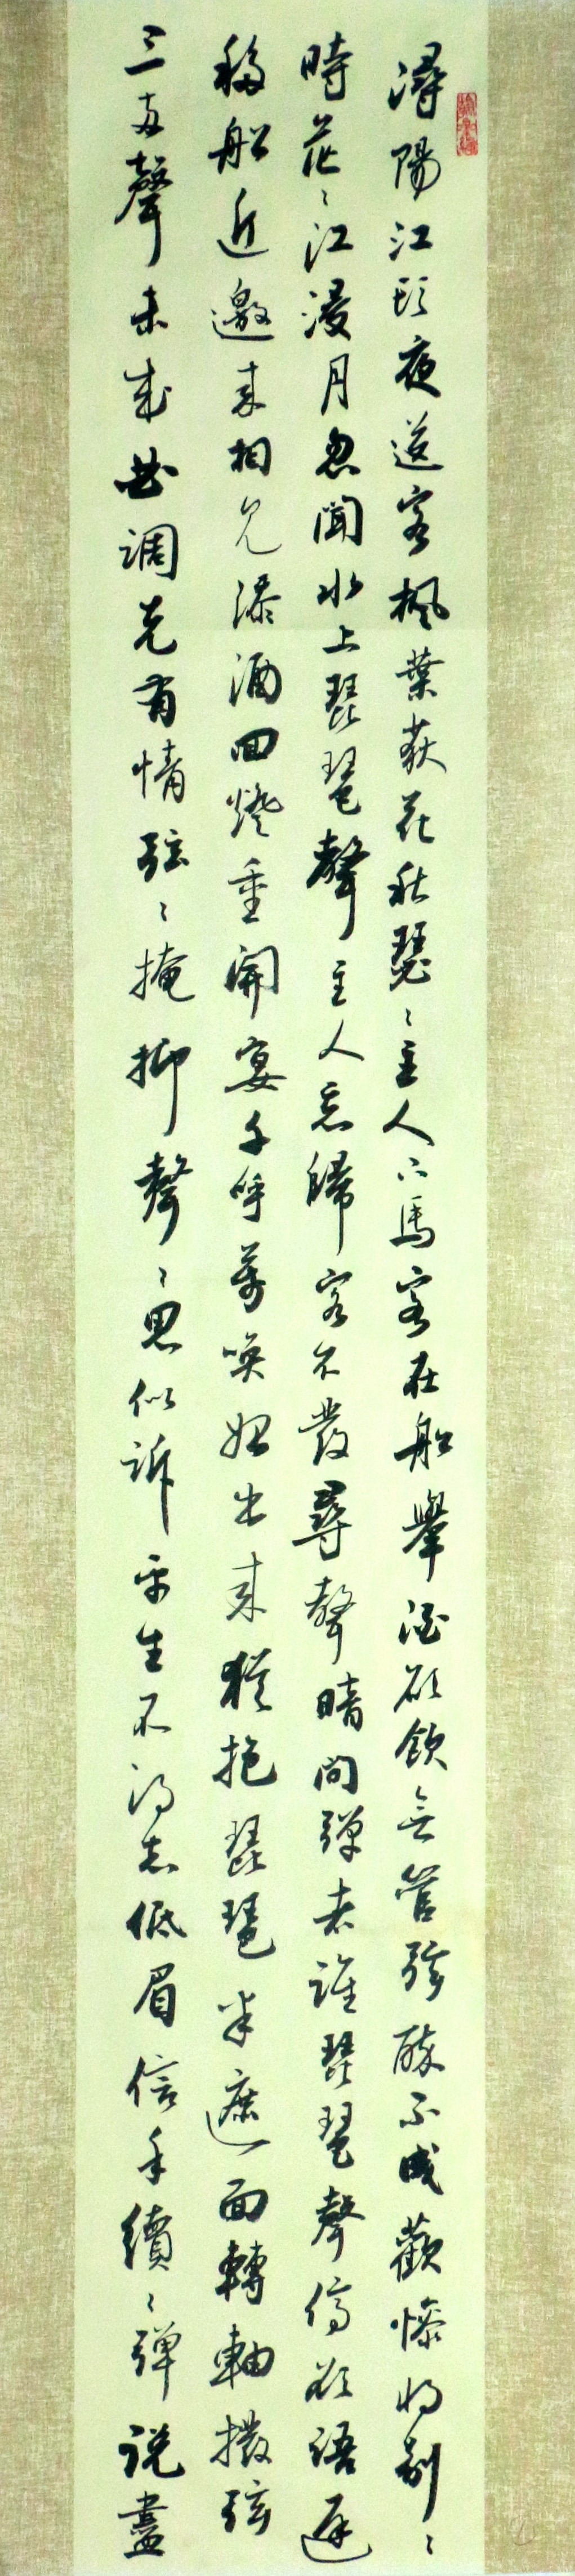 潯陽江頭夜送客楓葉荻花秋瑟〻主人下馬客在船舉酒欲飲無管弦醉不成歡慘將別〻
時茫〻江浸月忽聞水上琵琶聲主人忘歸客不發尋聲暗問彈者誰琵琶聲停欲語遲
移船近邀來相見添酒回燈重開宴千呼萬喚始出來猶抱琵琶半遮面轉軸撥弦
三兩聲未成曲調先有情弦〻掩抑聲〻思似訴平生不得志低眉信手續〻彈說盡